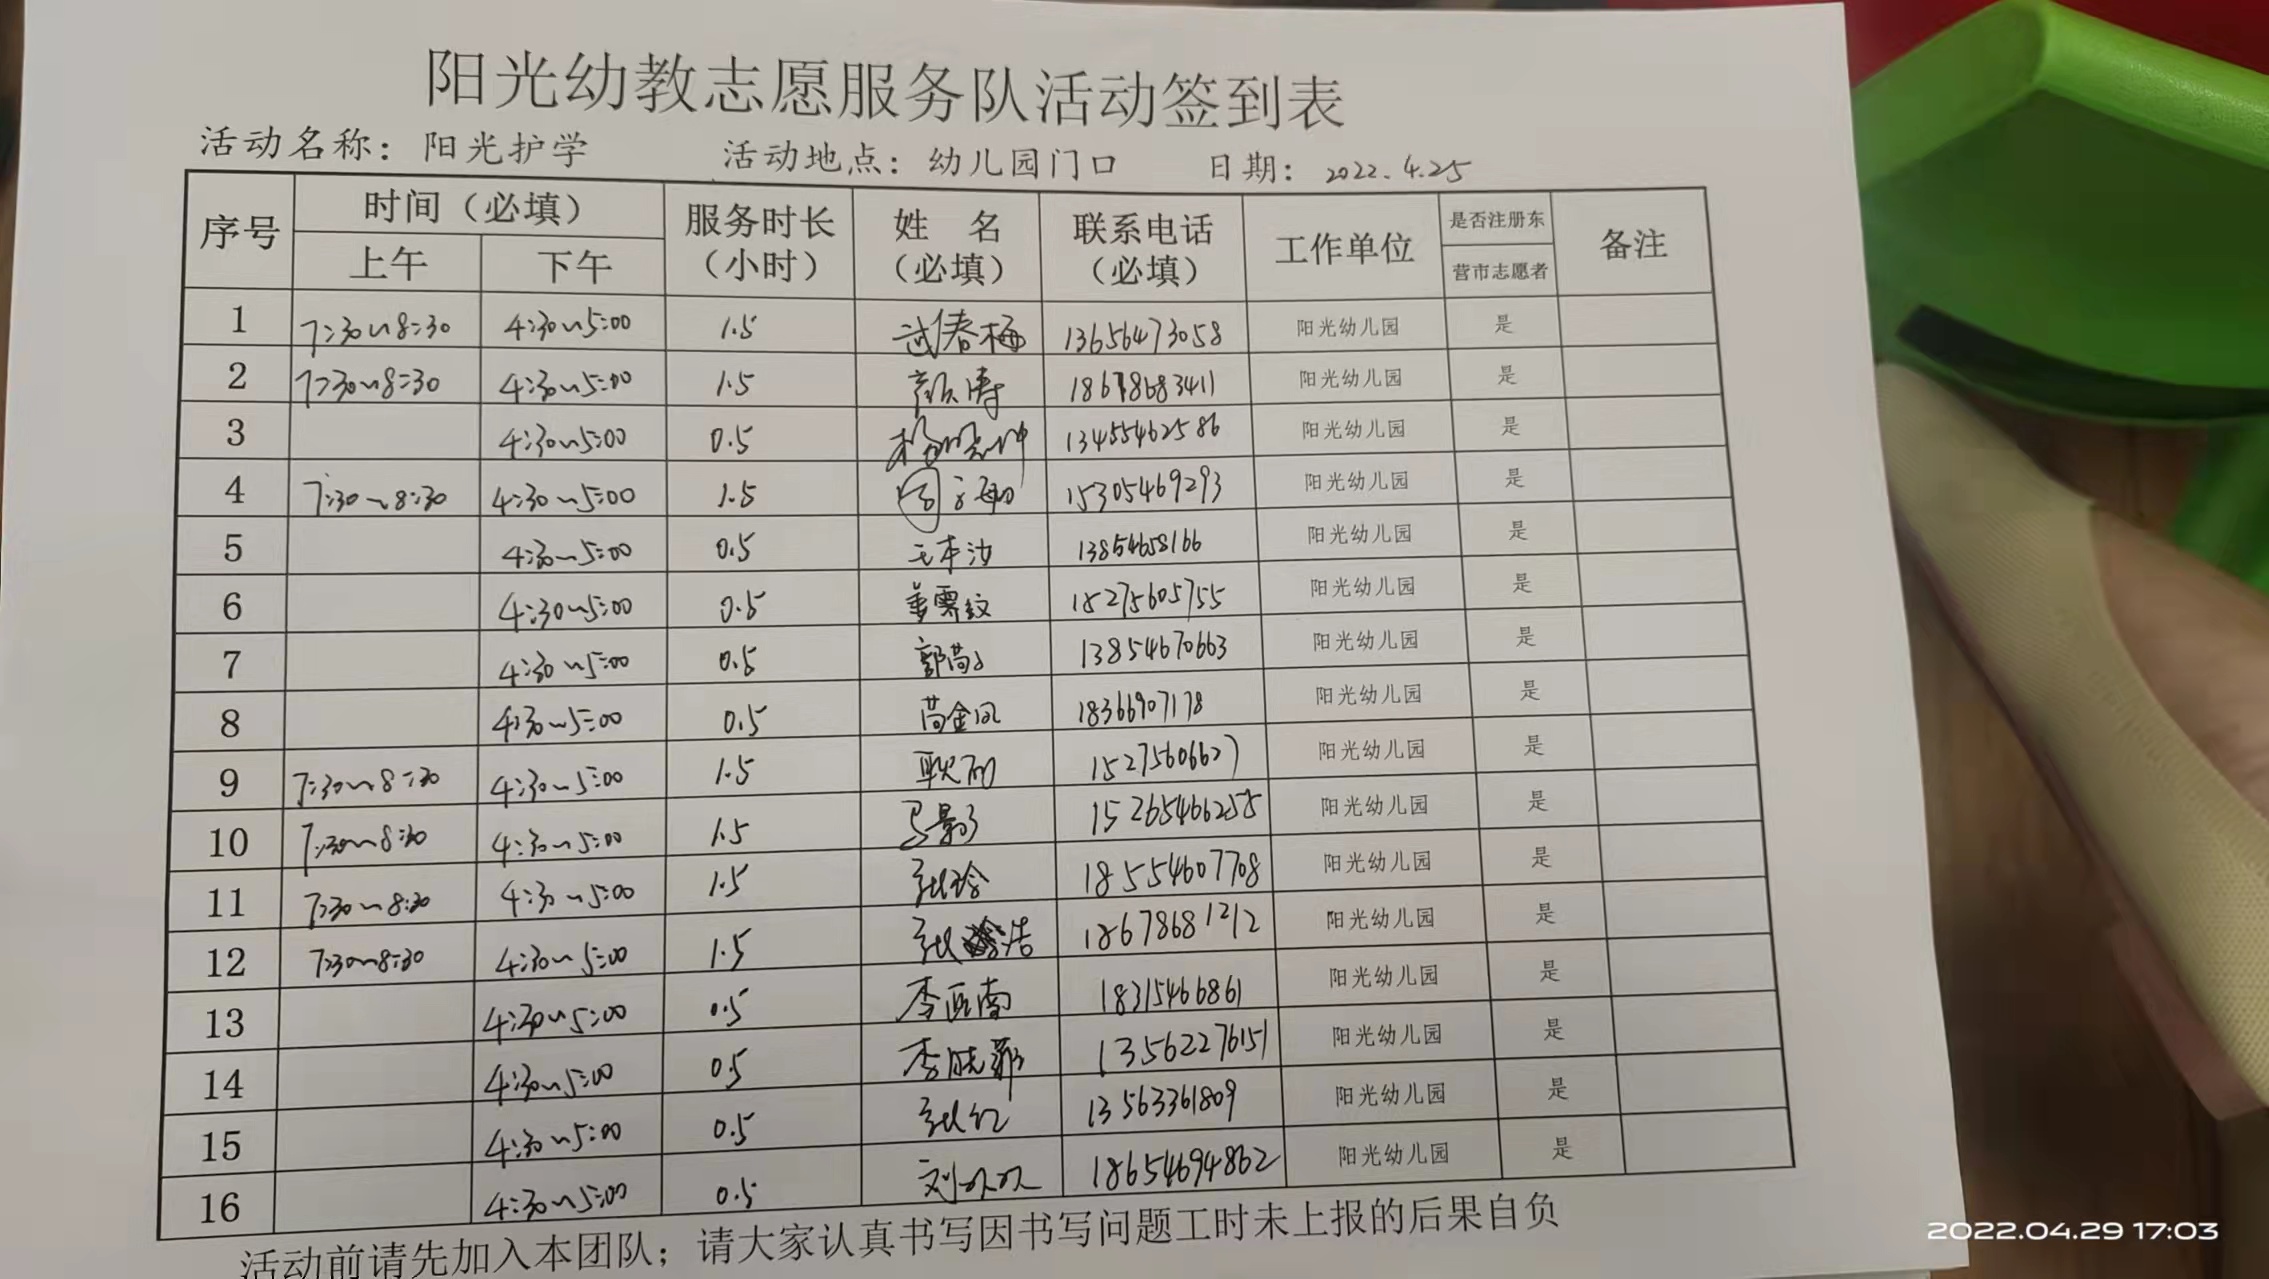 阳光幼教志愿服务队活动签到表
活动名称：阳光护学 活动地点：幼儿园门口 日期：2022.4.25
序号 时间（必填） 服务时长（小时） 姓 名（必填） 联系电话（必填） 工作单位 是否注册东营市志愿者 备注
上午 下午
1 7:30~8:30 4:30~5:00 1.5 武春梅 13656473058 阳光幼儿园 是
2 7:30~8:30 4:30~5:00 1.5 颜涛 18678683411 阳光幼儿园 是
3 4:30~5:00 0.5 13455462586 阳光幼儿园 是
4 7:30~8:30 4:30~5:00 1.5 15305469293 阳光幼儿园 是
5 4:30~5:00 0.5 13854658166 阳光幼儿园 是
6 4:30~5:00 0.5 姜雪纹 18275605755 阳光幼儿园 是
7 4:30~5:00 0.5 13854670663 阳光幼儿园 是
8 4:30~5:00 0.5 苘金凤 18366907178 阳光幼儿园 是
9 7:30~8:30 4:30~5:00 1.5 耿丽 15275606627 阳光幼儿园 是
10 7:30~8:30 4:30~5:00 1.5 马影 15265466255 阳光幼儿园 是
11 7:30~8:30 4:30~5:00 1.5 张玲 18554607708 阳光幼儿园 是
12 7:30~8:30 4:30~5:00 1.5 张浩 18678681212 阳光幼儿园 是
13 4:30~5:00 0.5 李亚南 18315466861 阳光幼儿园 是
14 4:30~5:00 0.5 李晓菲 13562276151 阳光幼儿园 是
15 4:30~5:00 0.5 张红 13563361809 阳光幼儿园 是
16 4:30~5:00 0.5 刘双双 18654694862 阳光幼儿园 是
活动前请先加入本团队；请大家认真书写因书写问题工时未上报的后果自负
2022.04.29 17:03